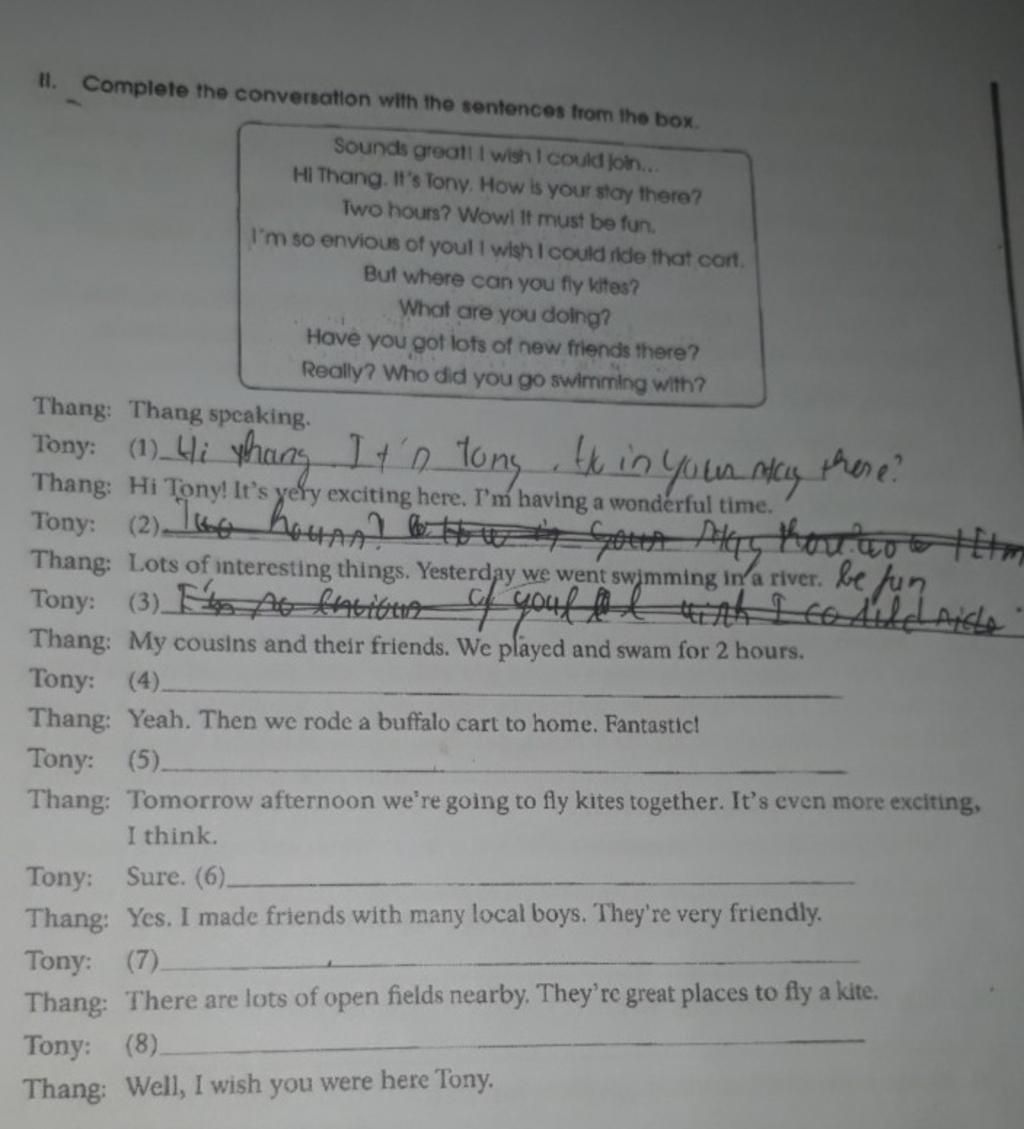 II. Complete the conversation with the sentences from the box.
Sounds great! I wish I could join...
Hi Thang. It's Tony. How is your stay there?
Two hours? Wow! It must be fun.
I'm so envious of you! I wish I could ride that cart.
But where can you fly kites?
What are you doing?
Have you got lots of new friends there?
Really? Who did you go swimming with?
Thang: Thang speaking.
Tony: (1) Hi Thang It's Tony. in your stay there?
Thang: Hi Tony! It's very exciting here. I'm having a wonderful time.
Tony: (2) Two hours? How is your stay
Thang: Lots of interesting things. Yesterday we went swimming in a river. be fun
Tony: (3) I'm so envious of you! I wish I could ride
Thang: My cousins and their friends. We played and swam for 2 hours.
Tony: (4)
Thang: Yeah. Then we rode a buffalo cart to home. Fantastic!
Tony: (5)
Thang: Tomorrow afternoon we're going to fly kites together. It's even more exciting,
I think.
Tony: Sure. (6)
Thang: Yes. I made friends with many local boys. They're very friendly.
Tony: (7)
Thang: There are lots of open fields nearby. They're great places to fly a kite.
Tony: (8)
Thang: Well, I wish you were here Tony.